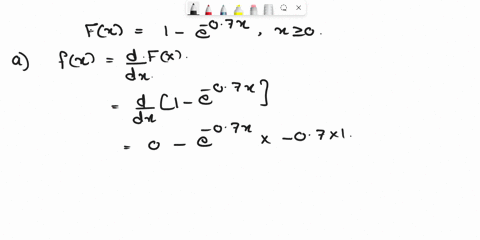 F(x) = 1 - e^{-0.7x}, x ≥ 0.
a) f(x) = d/dx F(x).
= d/dx [1 - e^{-0.7x}]
= 0 - e^{-0.7x} × -0.7×1.